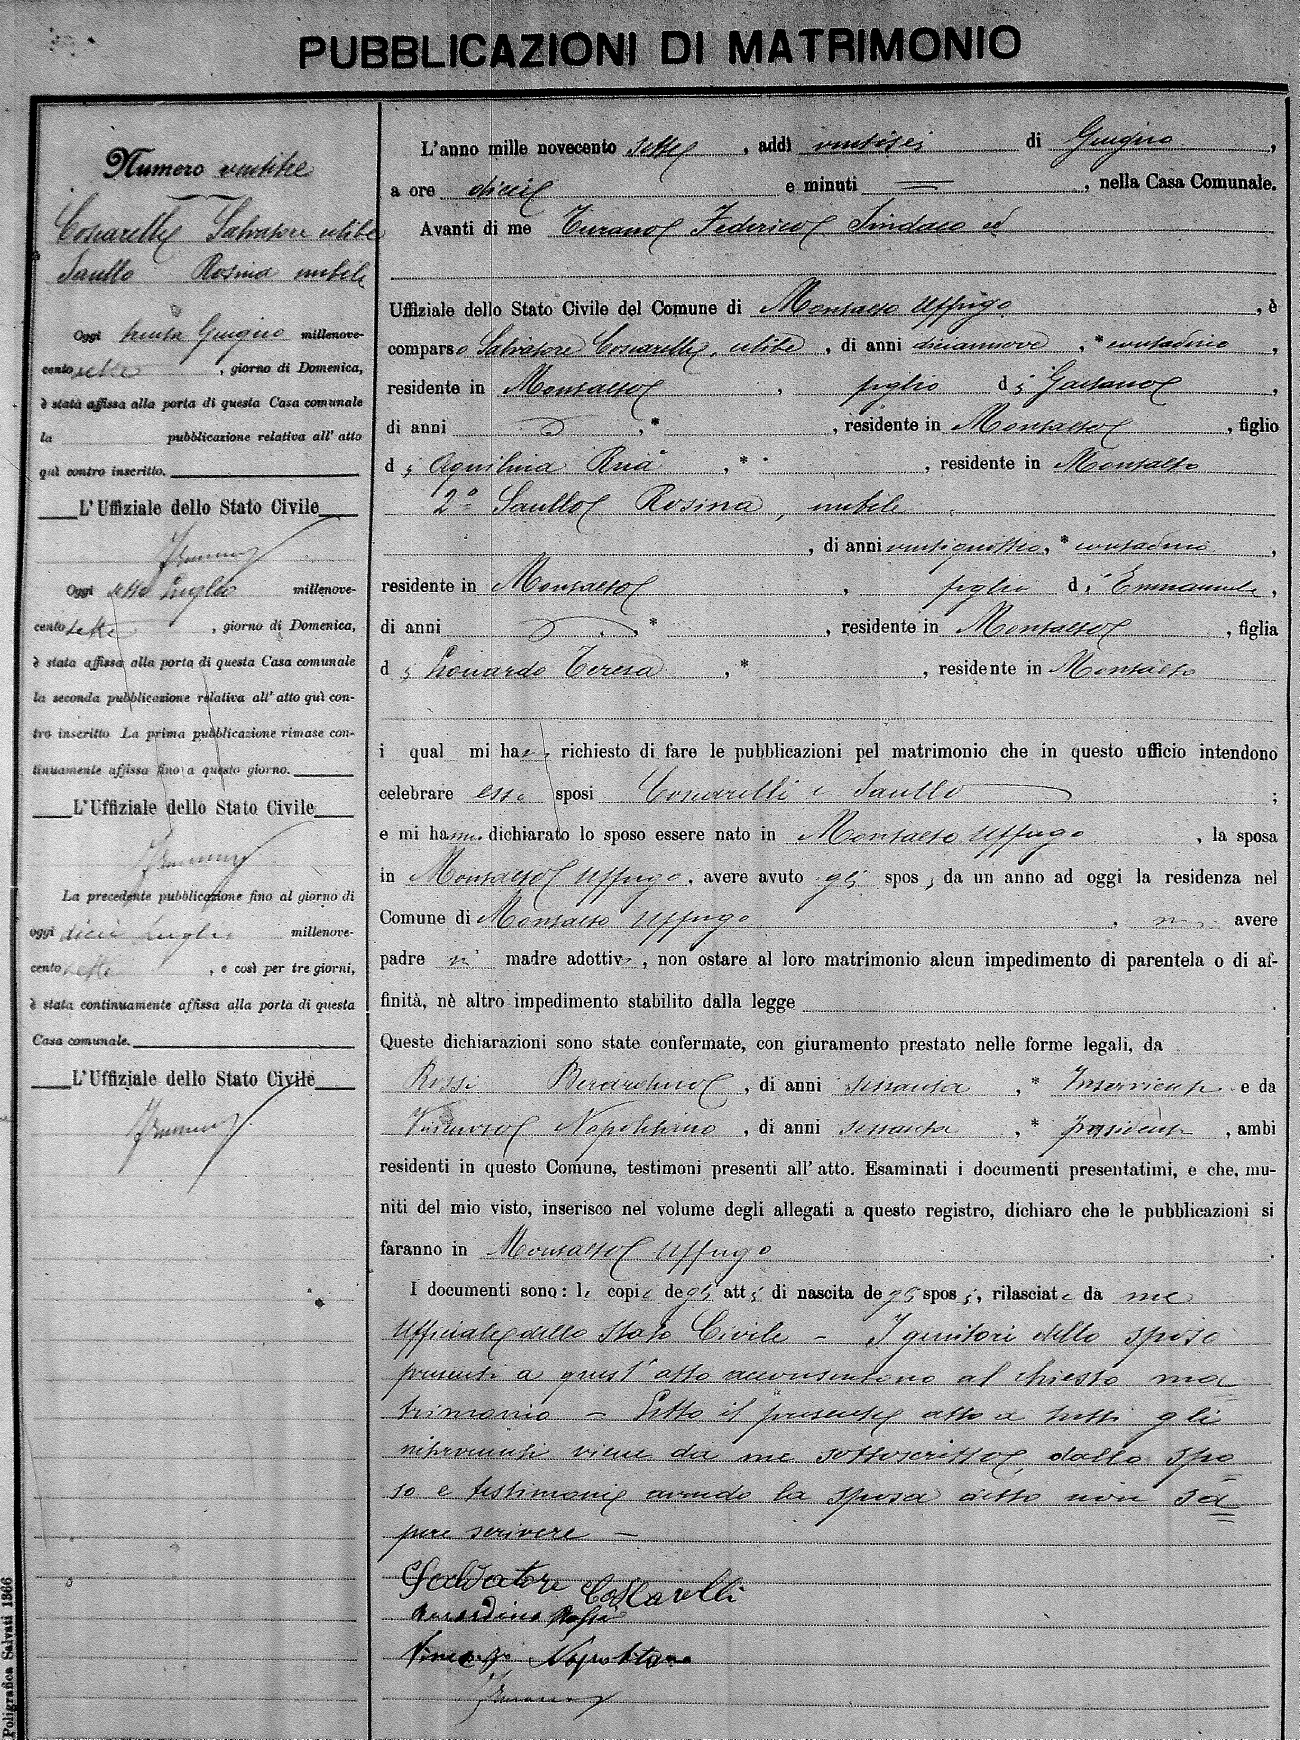 PUBBLICAZIONI DI MATRIMONIO
Numero ventitre
Coscarelli Salvatore celibe
Saullo Rosina nubile
Oggi trenta Giugno millenove-
cento sette, giorno di Domenica,
è stata affissa alla porta di questa Casa comunale
la pubblicazione relativa all' atto
quì contro inscritto.
L'Uffiziale dello Stato Civile
Oggi sette Luglio millenove-
cento sette, giorno di Domenica,
è stata affissa alla porta di questa Casa comunale
la seconda pubblicazione relativa all' atto quì con-
tro inscritto La prima pubblicazione rimase con-
tinuamente affissa fino a questo giorno.
L'Uffiziale dello Stato Civile
La precedente pubblicazione fino al giorno di
oggi dieci Luglio millenove-
cento sette, e così per tre giorni,
è stata continuamente affissa alla porta di questa
Casa comunale.
L'Uffiziale dello Stato Civile
Poligrafica Salvati 1366
L'anno mille novecento sette, addì ventisei di Giugno,
a ore dieci e minuti =, nella Casa Comunale.
Avanti di me Turano Federico Sindaco ed
Uffiziale dello Stato Civile del Comune di Montalto Uffugo, è
comparso Salvatore Coscarelli, celibe, di anni diciannove, * contadino,
residente in Montalto, figlio di Gaetano,
di anni, *, residente in Montalto, figlio
di Aquilina, *, residente in Montalto
2° Saullo Rosina, nubile
, di anni ventiquattro, * contadina,
residente in Montalto, figlia di Emmanuele,
di anni, *, residente in Montalto, figlia
di Teresa, *, residente in Montalto
i qual mi hanno richiesto di fare le pubblicazioni pel matrimonio che in questo ufficio intendono
celebrare essi sposi Coscarelli e Saullo;
e mi hanno dichiarato lo sposo essere nato in Montalto Uffugo, la sposa
in Montalto Uffugo, avere avuto gli sposi, da un anno ad oggi la residenza nel
Comune di Montalto Uffugo, nè avere
padre nè madre adottivi, non ostare al loro matrimonio alcun impedimento di parentela o di af-
finità, nè altro impedimento stabilito dalla legge.
Queste dichiarazioni sono state confermate, con giuramento prestato nelle forme legali, da
Rossi Berardino, di anni sessanta, * Inserviente e da
Vincenzo Napolitano, di anni sessanta, * possidente, ambi
residenti in questo Comune, testimoni presenti all' atto. Esaminati i documenti presentatimi, e che, mu-
niti del mio visto, inserisco nel volume degli allegati a questo registro, dichiaro che le pubblicazioni si
faranno in Montalto Uffugo.
I documenti sono: le copie degli atti di nascita degli sposi, rilasciate da me
Ufficiale dello Stato Civile – I genitori dello sposo
presenti a quest'atto acconsentono al chiesto ma
trimonio – Letto il presente atto a tutti gli
intervenuti viene da me sottoscritto, dallo spo
so e testimoni avendo la sposa detto non sa
pere scrivere –
Salvatore Coscarelli
Berardino Rossi
Vincenzo Napolitano